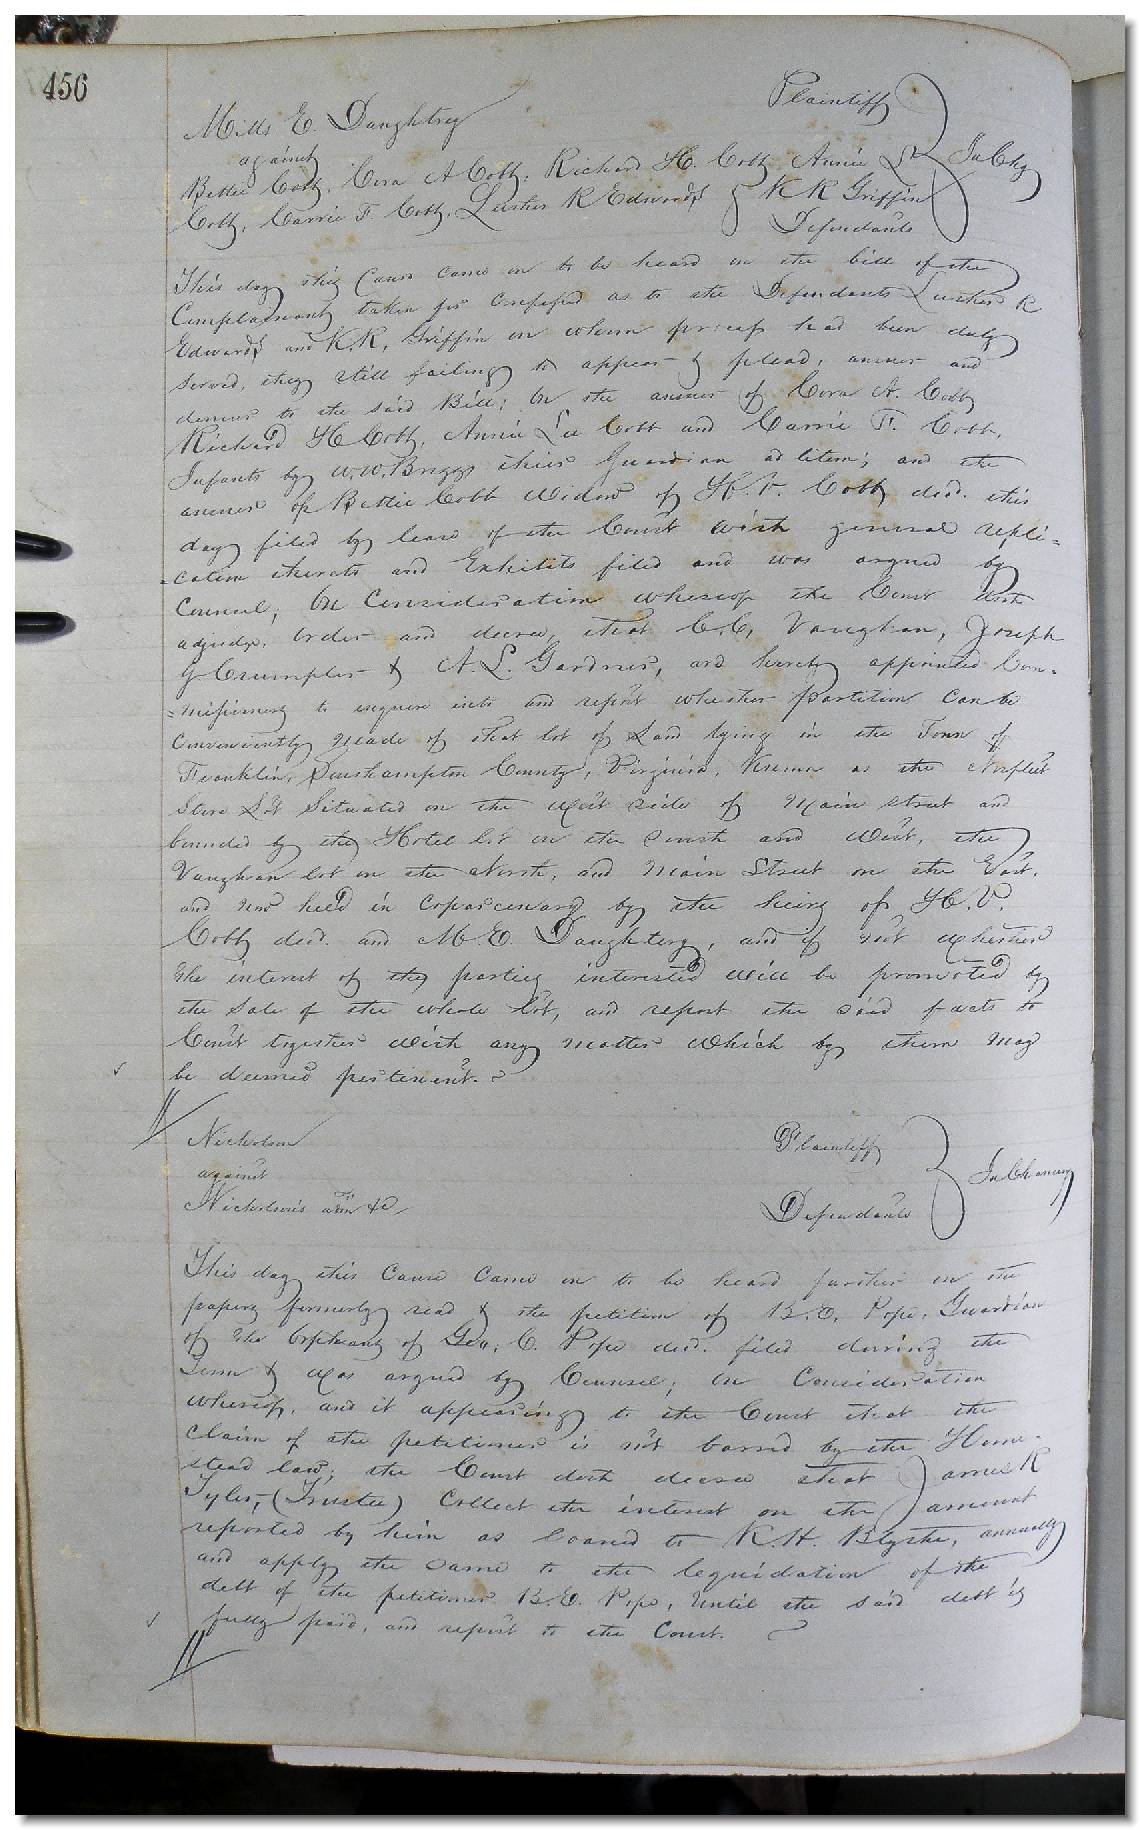 456
Mills E. Daughtrey Plaintiff
against
Bettie Cobb, Cora A Cobb, Richard H. Cobb, Annie L In Chy
Cobb, Carrie F. Cobb, Luther R Edwards & K R Griffin
Defendants
This day this Cause came on to be heard on the bill of the
Complainant taken for confessed as to the Defendants Luther R
Edwards and K.R. Griffin on whom process had been duly
served, they still failing to appear & plead, answer and
demur to the said Bill; On the answer of Cora A. Cobb
Richard H Cobb, Annie Lee Cobb and Carrie F. Cobb,
Infants by W.W. Briggs their Guardian ad litem; and the
answer of Bettie Cobb Widow of H.V. Cobb decd. this
day filed by leave of the Court with general repli-
-cation thereto and Exhibits filed and was argued by
Counsel; On Consideration whereof the Court doth
adjudge, order and decree, that C.C. Vaughan, Joseph
G Crumpler & A.L. Gardner, are hereby appointed Com-
-missioners to enquire into and report whether partition can be
conveniently made of that lot of Land lying in the Town of
Franklin, Southampton County, Virginia, Known as the Norfleet
Store Lot Situated on the West side of Main street and
bounded by the Hotel lot on the South and West, the
Vaughan lot on the North, and Main Street on the East,
and now held in coparcenary by the heirs of H.V.
Cobb decd. and M.E. Daughtery, and if not whether
the interest of the parties interested will be promoted by
the Sale of the whole lot, and report the said facts to
Court together with any matter which by them may
be deemed pertinent.
Nicholson Plaintiff
against In Chancery
Nicholson's admr &c Defendants
This day this Cause Came on to be heard further on the
papers formerly read & the petition of B.E. Pope, Guardian
of the Orphans of Geo. C. Pope decd. filed during the
Term & was argued by Counsel; On Consideration
whereof, and it appearing to the Court that the
Claim of the petitioner is not barred by the Home-
stead law; the Court doth decree that James R
Tyler, (Trustee) Collect the interest on the amount
reported by him as loaned to R.H. Blythe, annually
and apply the same to the liquidation of the
debt of the petitioner B.E. Pope, Until the said debt is
fully paid, and report to the Court.